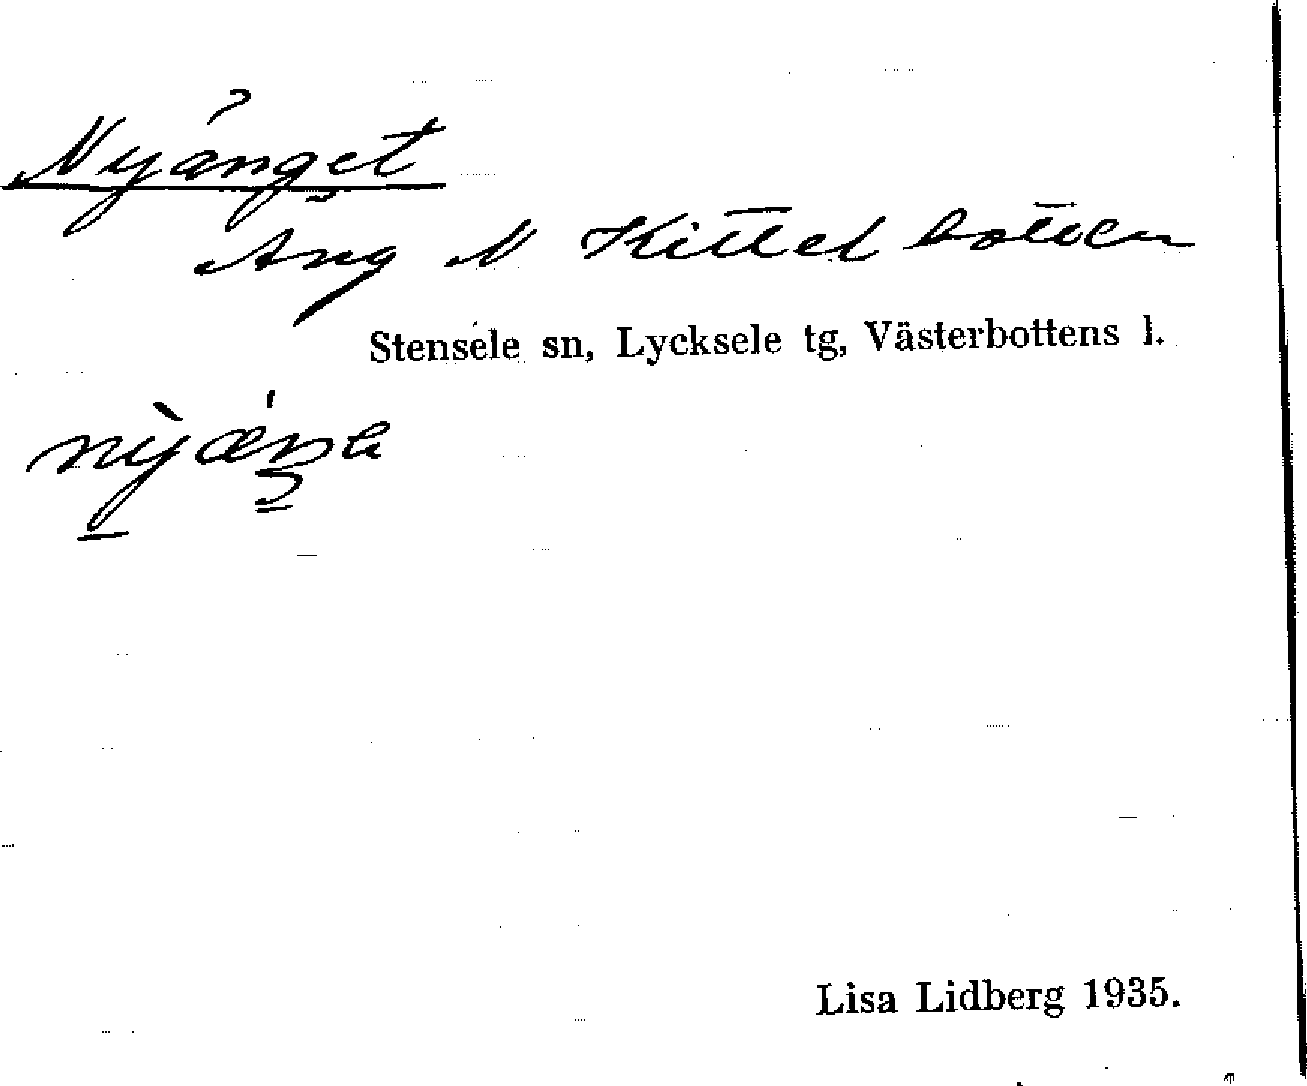 Nyänget
Äng N Kittelbotten
Stensele sn, Lycksele tg, Västerbottens l.
Lisa Lidberg 1935.